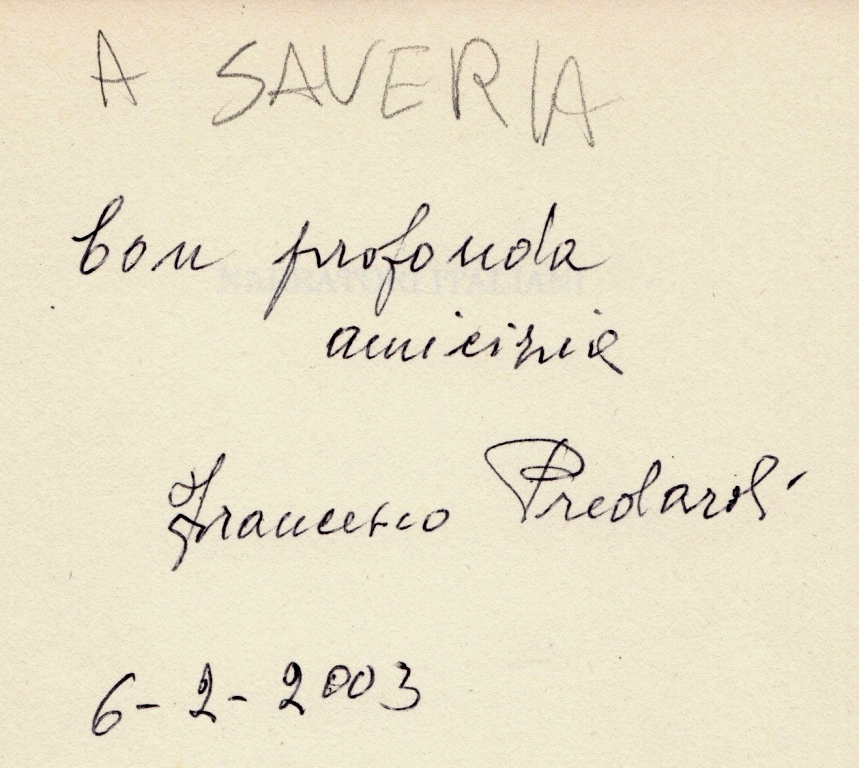 A SAVERIA
Con profonda
NARRATORI ITALIANI
amicizia
Francesco Predaroli
6-2-2003